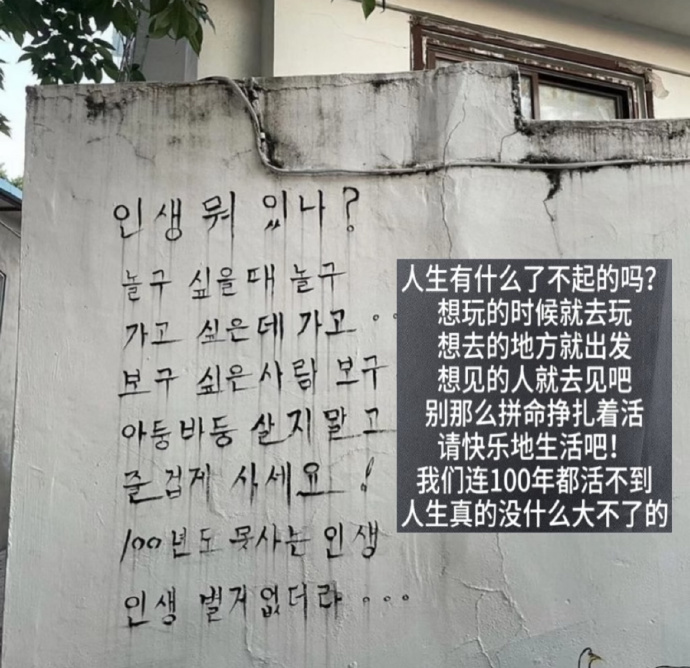 인생 뭐 있나?
놀구 싶을때 놀구
가고 싶은데 가고..
보구 싶은사람 보구
아둥바둥 살지말고
즐겁게 사세요!
100년도 못사는 인생
인생 별거없더라...
人生有什么了不起的吗？
想玩的时候就去玩
想去的地方就出发
想见的人就去见吧
别那么拼命挣扎着活
请快乐地生活吧！
我们连100年都活不到
人生真的没什么大不了的